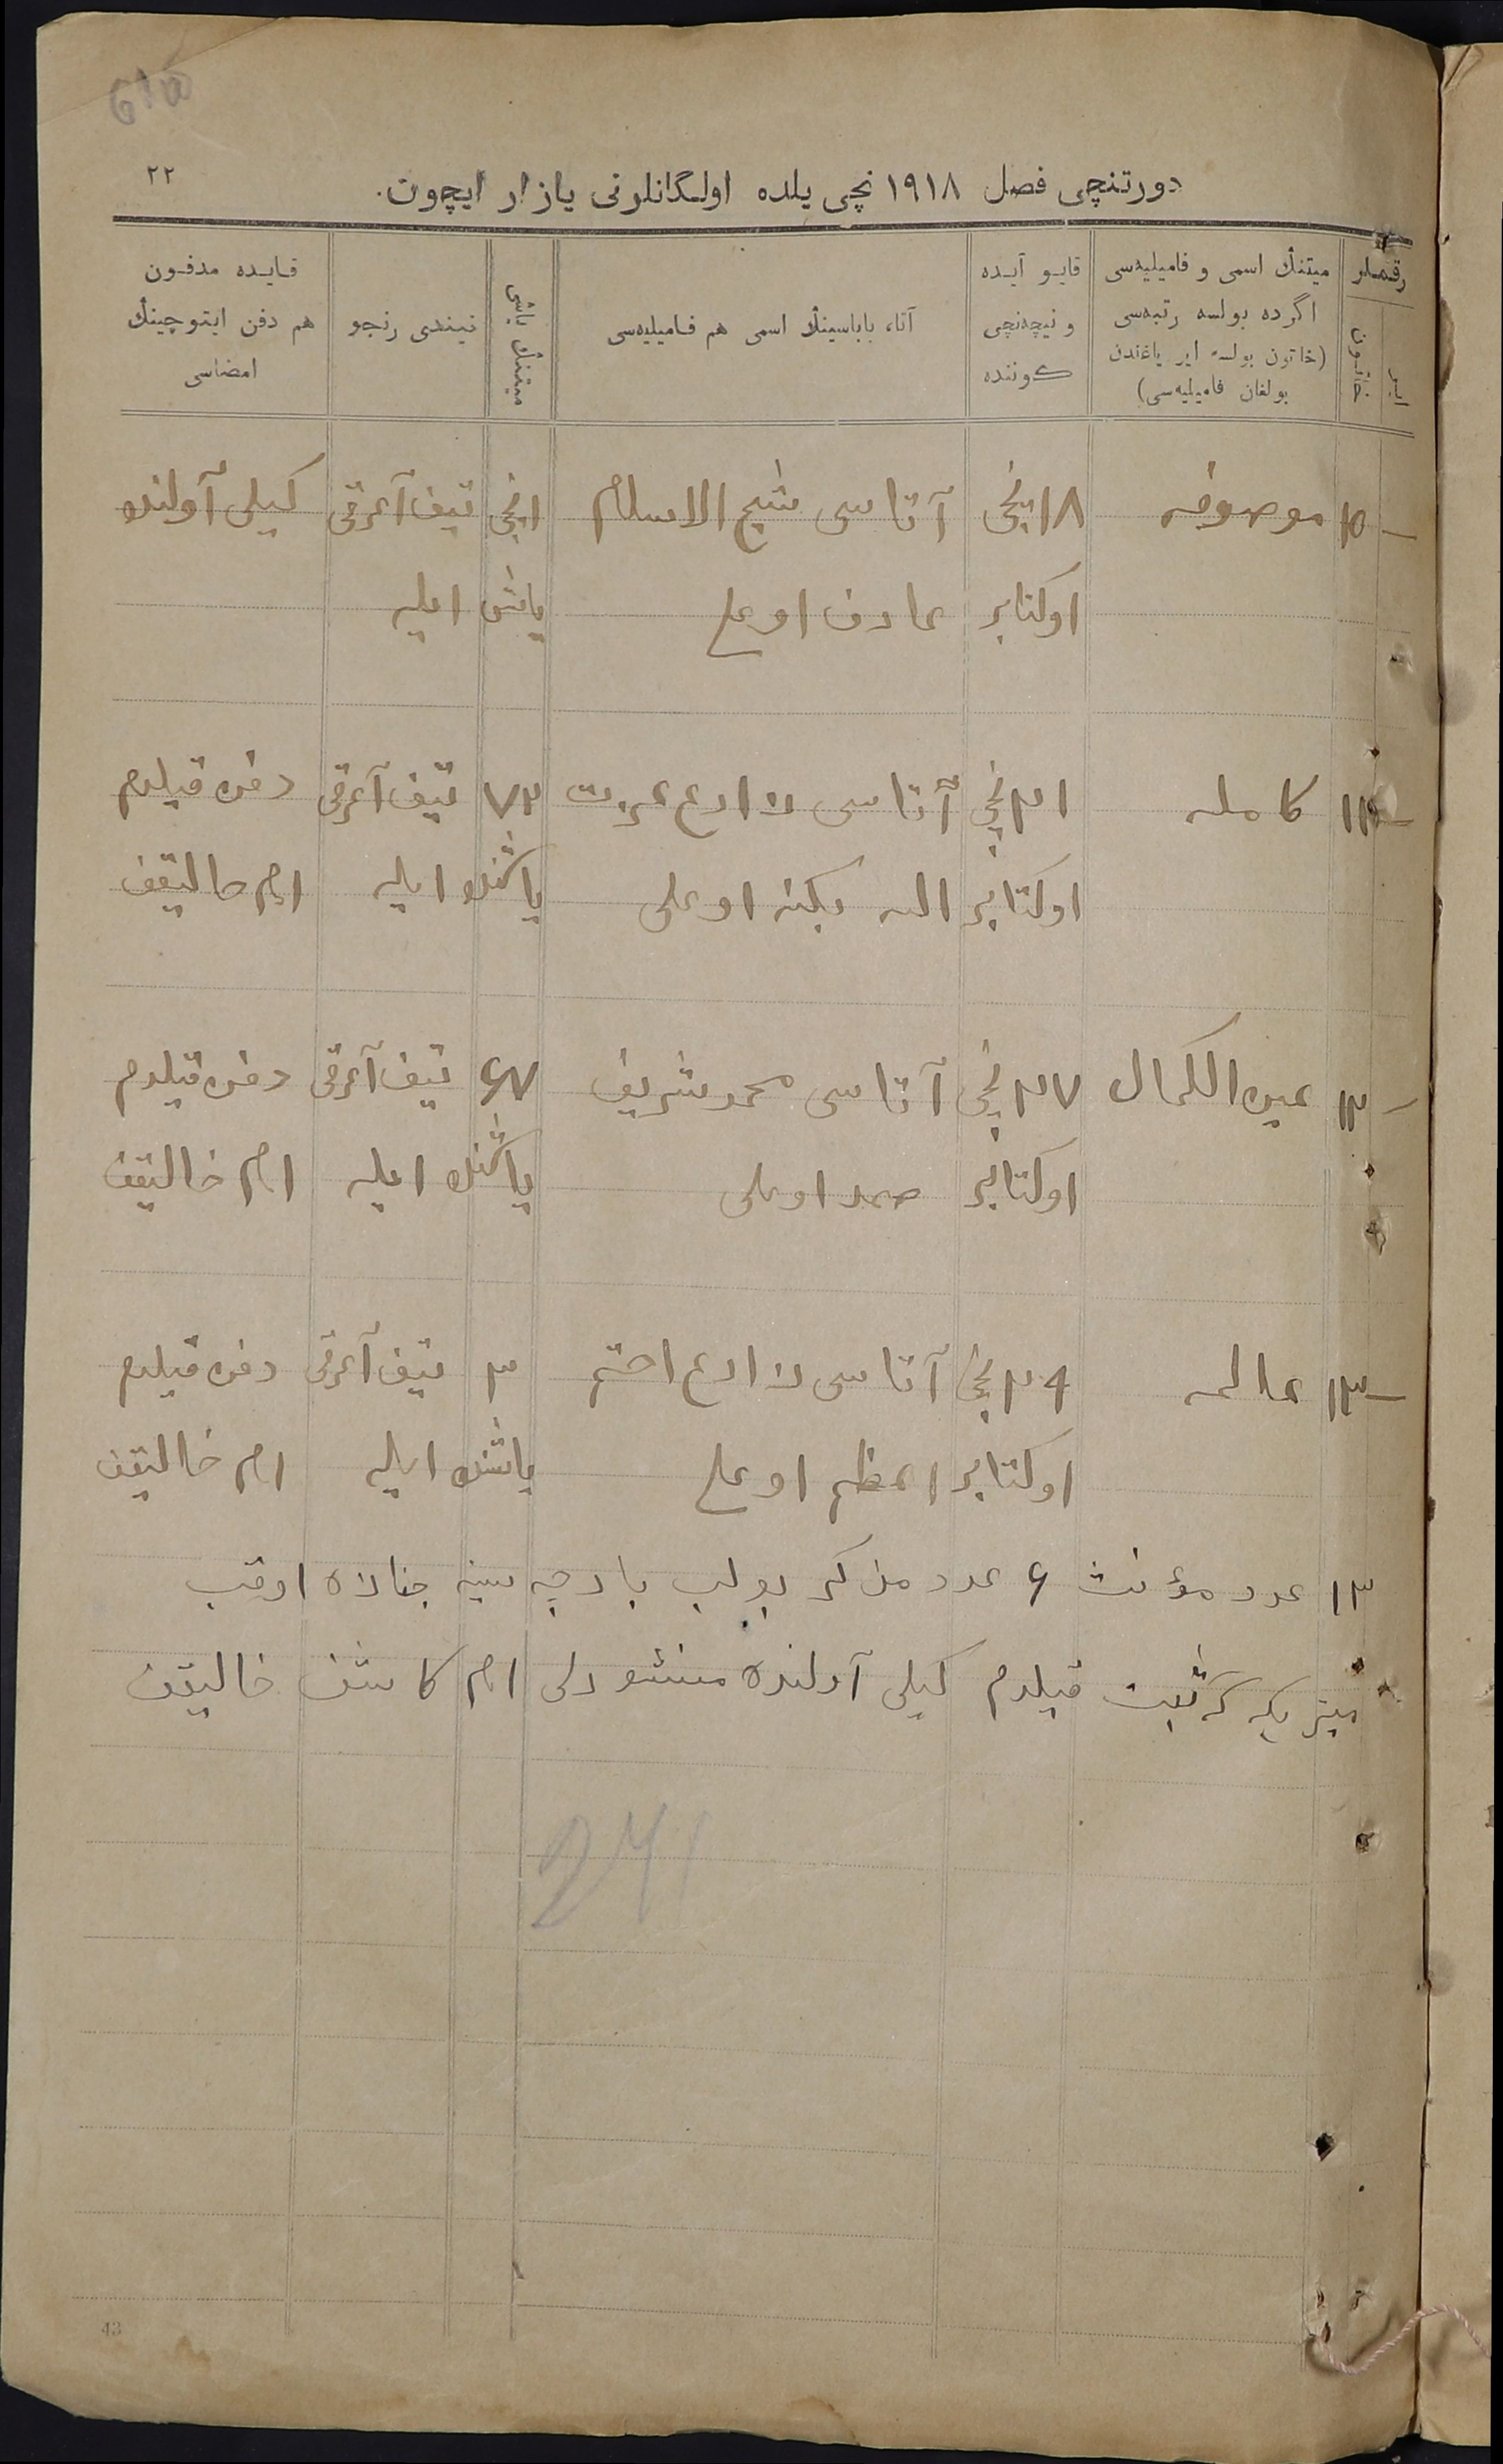 دورتنچی فصل ۱۹۱۸ نچی یلده اولگانلرنی یازار ایچون.
۲۲
رقملر
ایر
خاتون
میتنڭ اسمی و فامیلیه‌سی
اگرده بولسه رتبه‌سی
(خاتون بولسه ایر یاغندن
بولغان فامیلیه‌سی)
قایو آیده
و نیچه‌نچی
کوننده
آتا، باباسینڭ اسمی هم فامیلیه‌سی
میتنڭ یاشی
نیندی رنجو
قایده مدفون
هم دفن ایتوچینڭ
امضاسی
۱۰ موصوفه ۱۸نچی آتاسی شیخ الاسلام ۱نچی تیف آغرقی کیلی آولنده
اوکتابر عارف اوغلی یاش ایله
۱۱ کامله ۲۱نچی آتاسی عزت ۷۳ تیف آغرقی دفن قیلدم
اوکتابر اوغلی یاشنده ایله امام خالیقف
۱۲ ۲۷نچی آتاسی محمد شریف ۶۷ تیف آغرقی دفن قیلدم
اوکتابر صمد اوغلی یاشنده ایله امام خالیقف
۱۳ عالمه آتاسی ۳ تیف آغرقی دفن قیلدم
اوکتابر اعظم اوغلی یاشنده ایله امام خالیقف
۱۳ عدد مؤنث ۶ عدد مذکر بولب بارچه سینه جنازه اوقب
میتریکه گه ثبت قیلدم کیلی آولنده منشورلی امام کاشف خالیقف
241
43